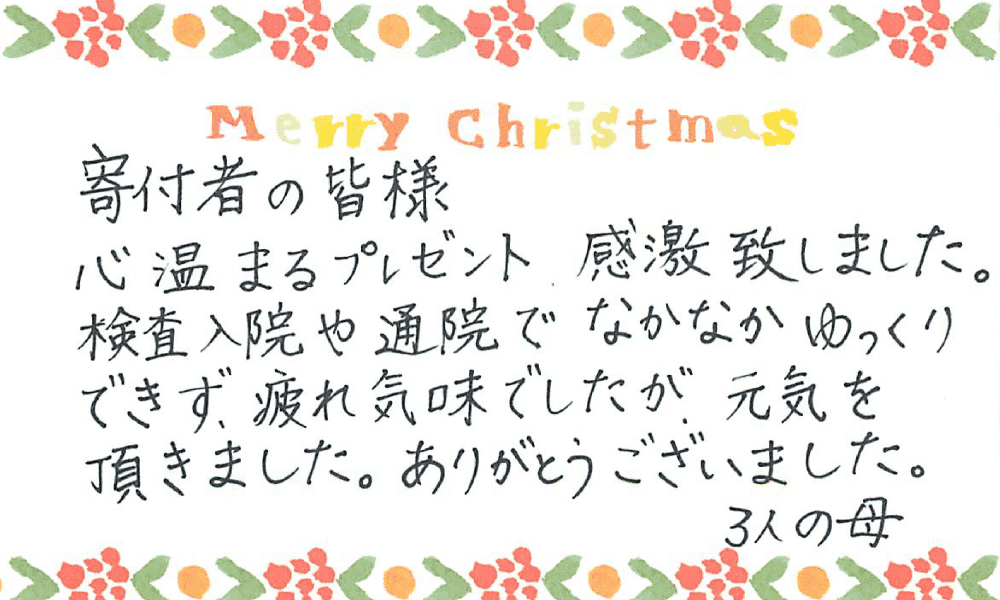 Merry Christmas
寄付者の皆様
心温まるプレゼント 感激致しました。
検査入院や通院で なかなかゆっくり
できず、疲れ気味でしたが、元気を
頂きました。ありがとうございました。
3人の母